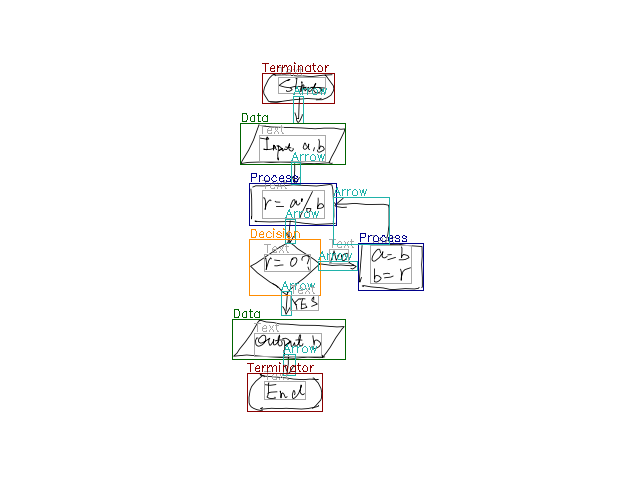 Terminator
Text
Start
Arrow
Data
Text
Input a,b
Arrow
Process
Text
r = a % b
Arrow
Arrow
Decision
Text
r = 0 ?
Text
NO
Arrow
Process
a = b
b = r
Arrow
Text
YES
Data
Text
Output b
Arrow
Terminator
Text
End